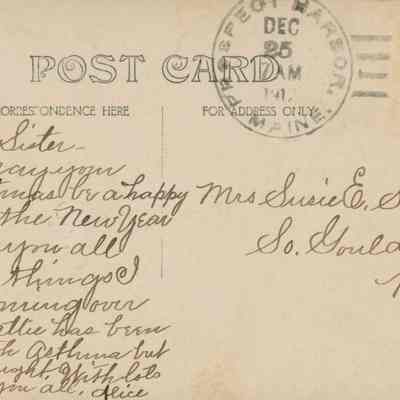 PROSPECT HARBOR,
MAINE.
DEC
25
AM
191
POST CARD
CORRESPONDENCE HERE
FOR ADDRESS ONLY
Sister -
may your
mas be a happy
the New Year
you all
things I
oming over
ettie has been
th Asthma but
ught. With lots
you all, Alice
Mrs Susie E. S
So. Gould